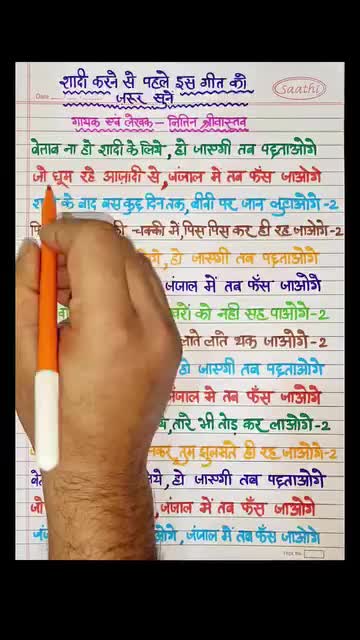 Saathi
Date
शादी करने से पहले इस गीत को
जरूर सुने
गायक एवं लेखक – नितिन श्रीवास्तव
बेताब ना हो शादी के लिये, हो जाएगी तब पछताओगे
जो घूम रहे आज़ादी से, जंजाल में तब फँस जाओगे
के बाद बस कुछ दिन तक, बीवी पर जान लुटाओगे -2
की चक्की में, पिस पिस कर ही रह जाओगे -2
हो जाएगी तब पछताओगे
जंजाल में तब फँस जाओगे
को नही सह पाओगे -2
लाते लाते थक जाओगे -2
हो जाएगी तब पछताओगे
जंजाल में तब फँस जाओगे
तारे भी तोड़ कर लाओगे -2
तुम झुलसते ही रह जाओगे -2
लिये, हो जाएगी तब पछताओगे
जो जंजाल में तब फँस जाओगे
जंजाल में तब फँस जाओगे